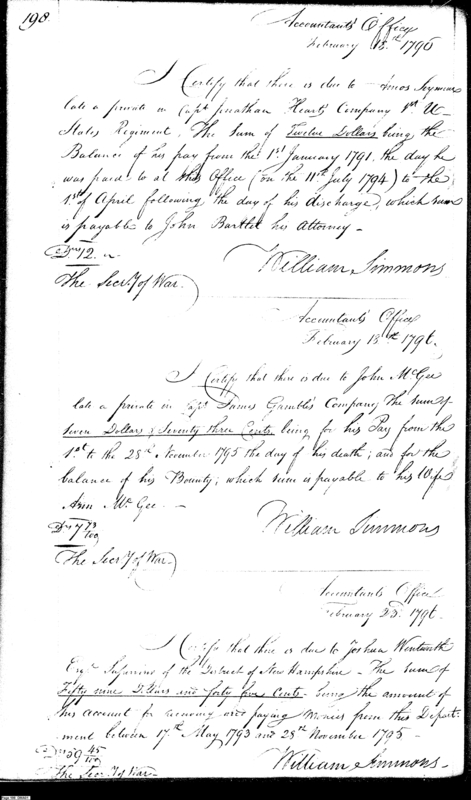 198
Accountants Office
February 13th 1796
I Certify that there is due to Amos Seymour
late a private in Capt Jonathan Hearts Company 1st U
States Regiment, The sum of Twelve Dollars being the
Balance of his pay from the 1st January 1791, the day he
was paid to at this Office (on the 11th July 1794) to the
1st of April following the day of his discharge, which sum
is payable to John Bartlet his Attorney -
Drs 12
William Simmons
The Secry of War.
Accountants Office
February 13th 1796.
I Certify that there is due to John McGee
late a private in Capt James Gambles Company The sum of
seven Dollars & Seventy three Cents being for his Pay from the
1st to the 28th November 1795 the day of his death; and for the
balance of his Bounty; which sum is payable to his Wife
Ann McGee -
Drs 7 73/100
William Simmons
The Secry of War
Accountants Office
February 23. 1796.
I Certify that there is due to Joshua Wentworth
Esqr of the District of New Hampshire - The sum of
Fifty nine Dollars and forty five Cents being the amount of
his account for receiving and paying Monies from this Depart-
ment between 17th May 1793 and 28th November 1795 -
Drs 59 45/100
William Simmons
The Secry of War